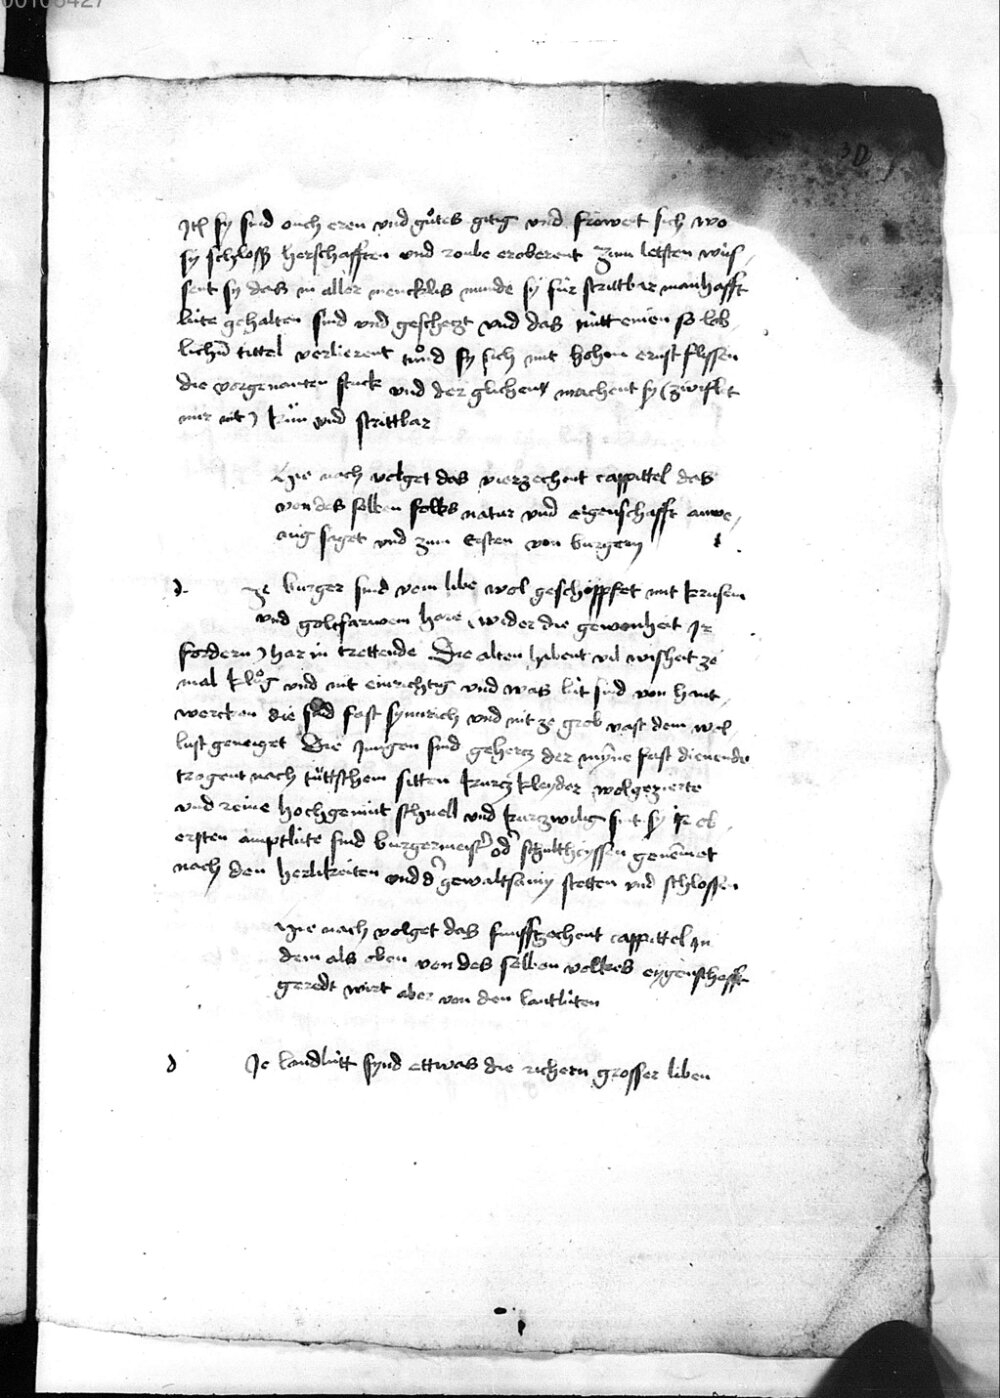 00106427
30
Itē sy sind ouch eren und gůtes gitig und fröwent sich wo
sy schlosß herschafften und roube eroberent Zum letsten wüs,
sent sy das in aller mencklis munde sy für strittbar manhafft
lüte gehalten sind und geschetzt und das nütt einen so lob,
lichn̄ tittel verlierent tuͦnd sy sich mit hohem ernst flissen
die vorgenanten stuck und der glichent machent sy (zwiflet
mir nit) kün und strittbar
Hie nach volget das vierzechent cappittel das
von des selben folks natur und eigenschafft
saget und zum Ersten von burgern
d. Ie burger sind vom libe wol geschöppfet mit krusem
und goltfarwem hare (wider die gewonheit Ir
fordern) har in trettende Die alten habent vil wisheit ze
mal kluͦg und nit einrichtig und was lüt sind von hant,
wercken die sind fast synnrich und nit ze grob vast dem wol,
lust geneiget Die Jungen sind gehertz der myn̄e fast dienende
tragent nach tüttschem sitten kurtz kleyder wolgezierte
und reine hochgemüt schnell und kurtzwilig sint sy Ir ob,
ersten amptlüte sind burgermeistr̄ od̄ schultheyssen genem̄et
nach den herlikeiten und d̄ gewaltsamy stetten und schlossen
Hie nach volget das funffzechent cappittel In
dem als oben von des selben volkes eygenschafft
geredt wirt aber von den lantlüten
d Ie landlütt synd ettwas die richern grosser liben